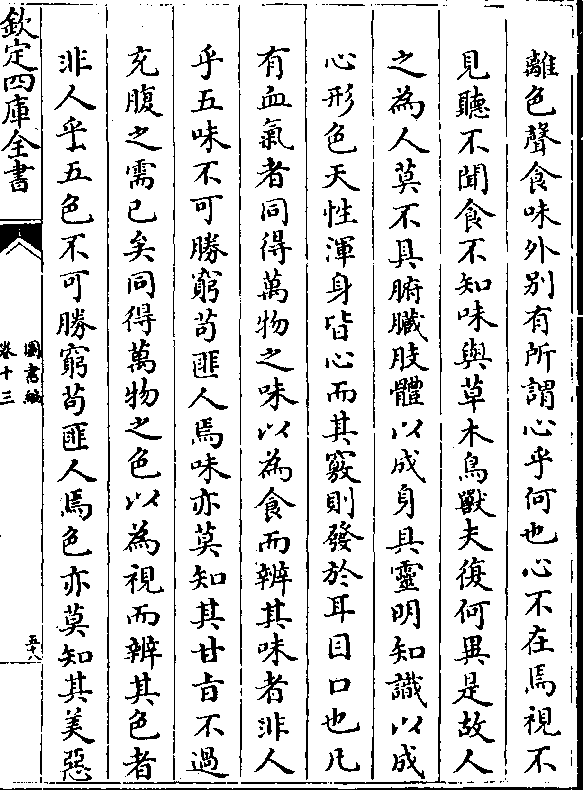 離色聲食味外别有所謂心乎何也心不在焉視不
見聽不聞食不知味與草木鳥獸夫復何異是故人
之為人莫不具腑臟肢體以成身具靈明知識以成
心形色天性渾身皆心而其竅則發於耳目口也凡
有血氣者同得萬物之味以為食而辨其味者非人
乎五味不可勝窮苟匪人焉味亦莫知其甘旨不過
充腹之需已矣同得萬物之色以為視而辨其色者
非人乎五色不可勝窮苟匪人焉色亦莫知其美惡
欽定四庫全書
圖書編
卷十三
五十八